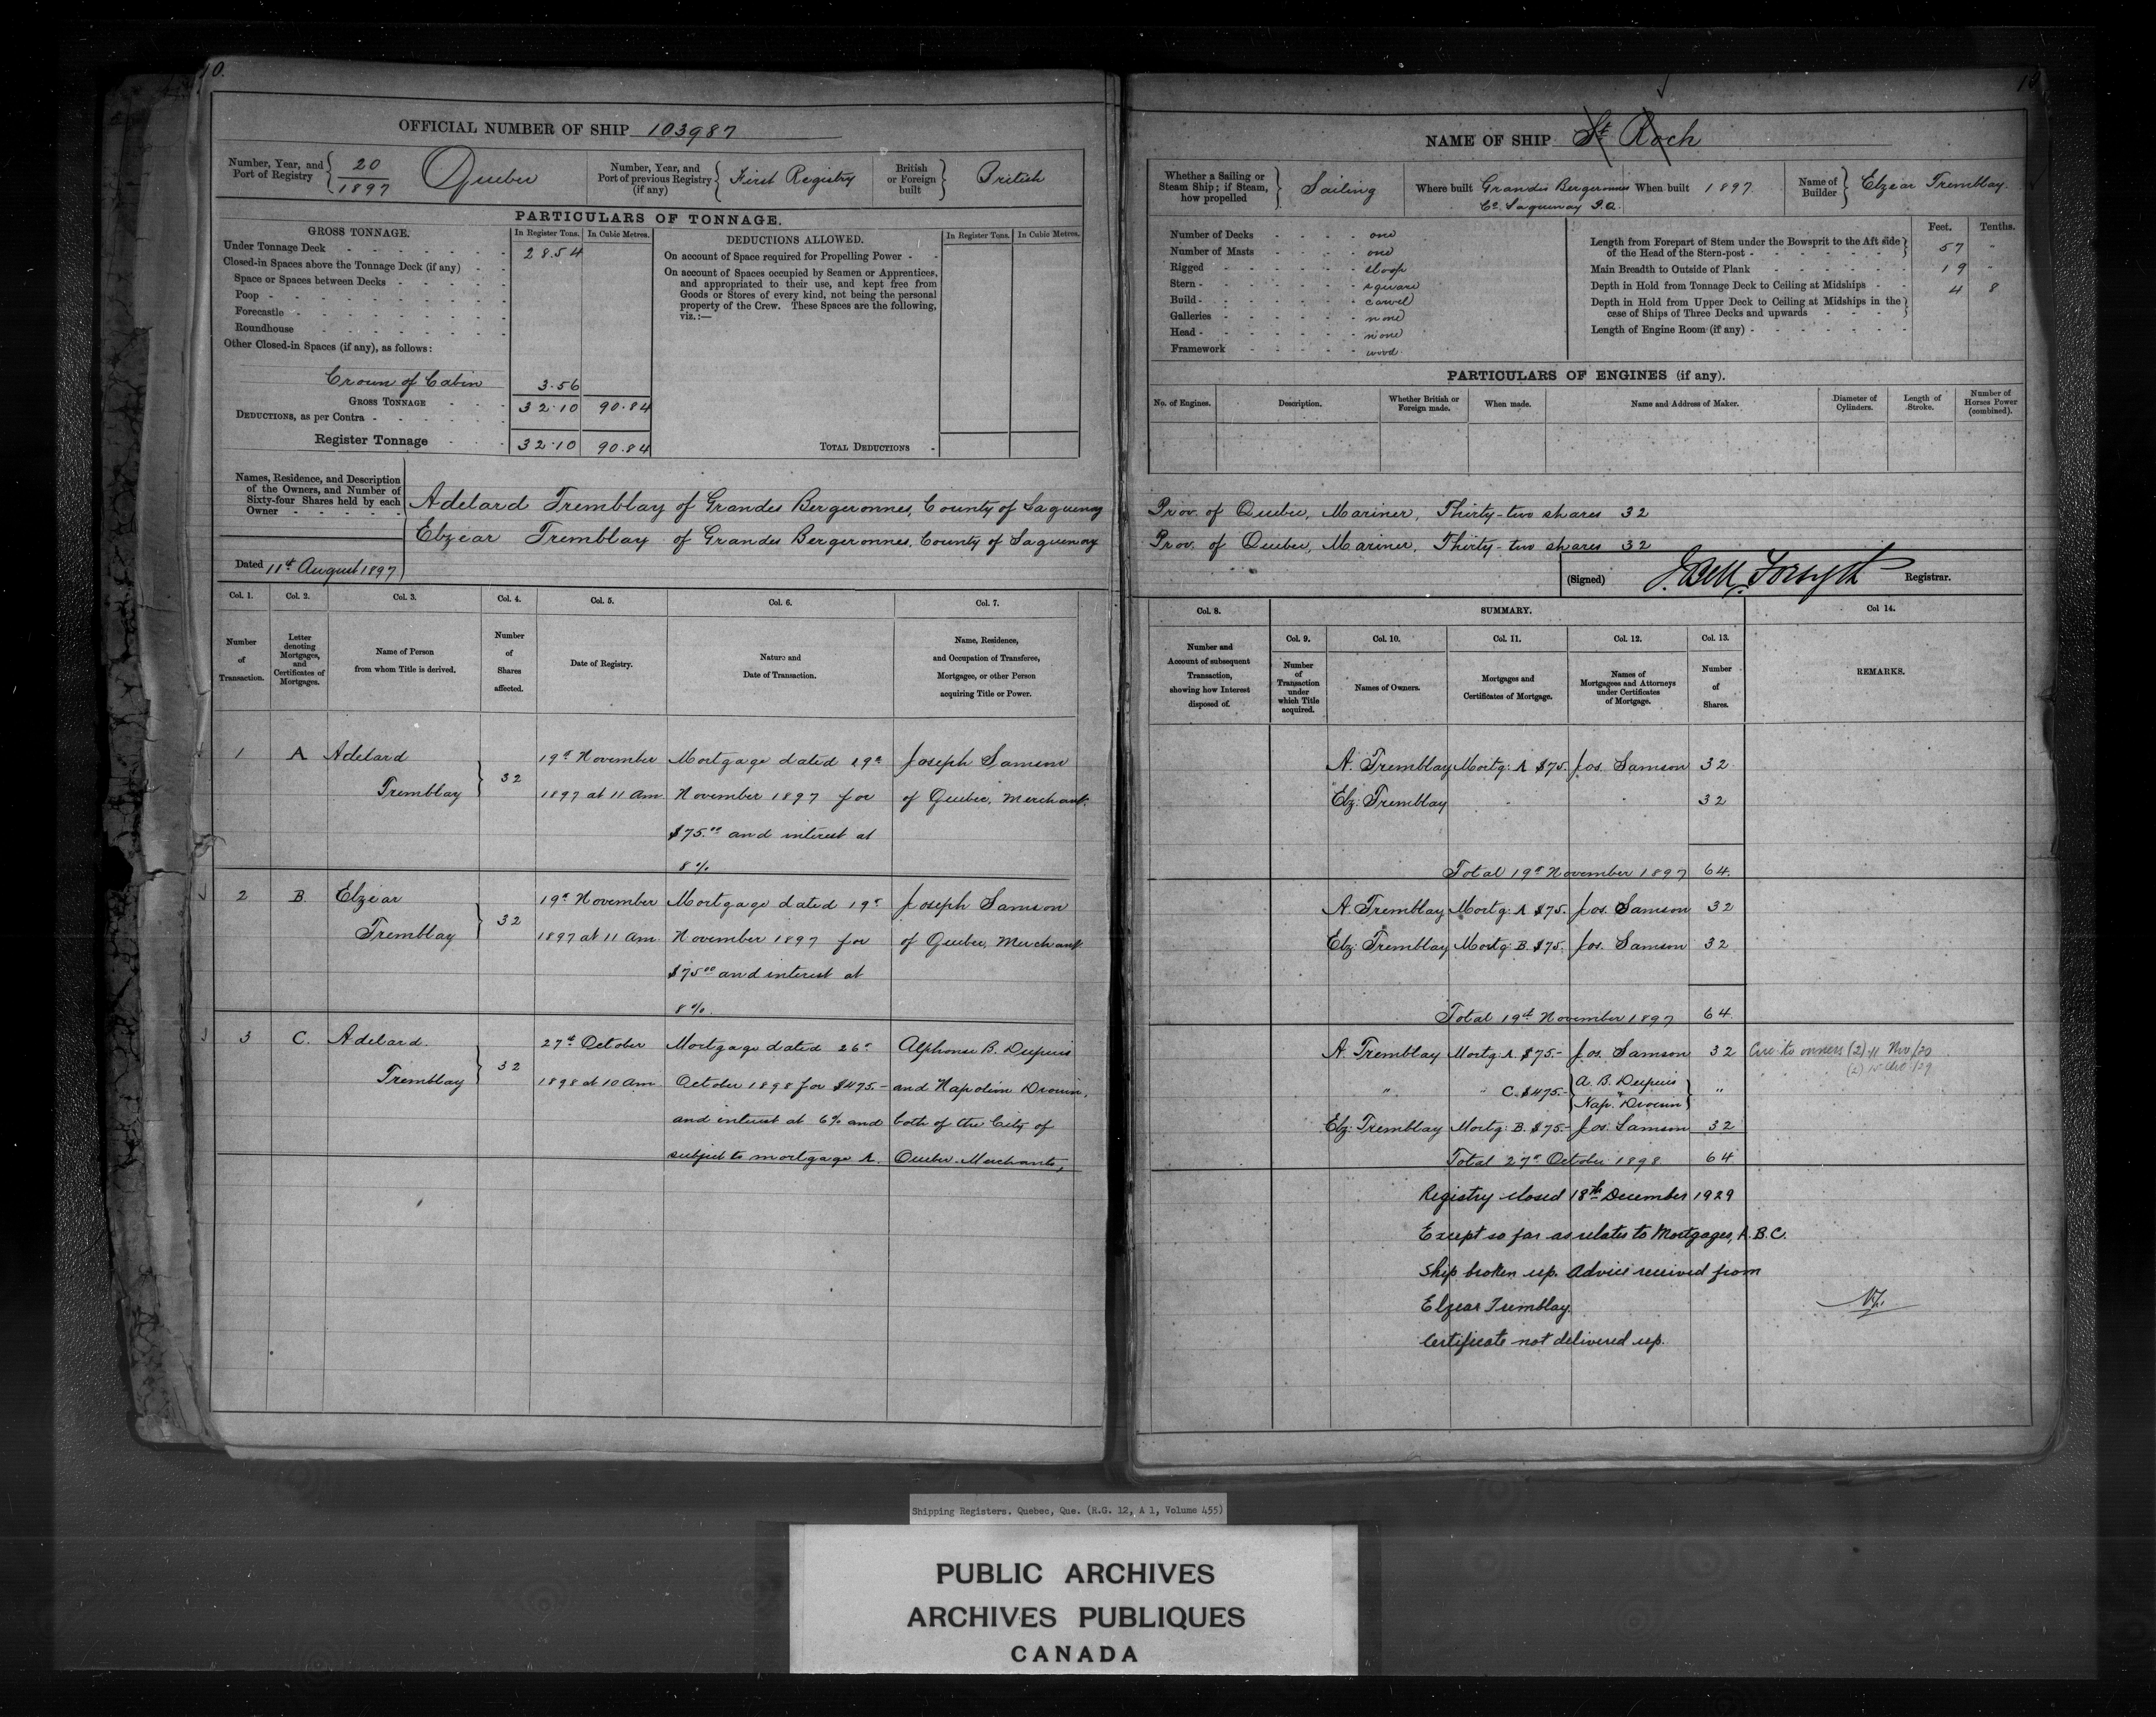 10.
OFFICIAL NUMBER OF SHIP 103987
Number, Year, and Port of Registry 20/1897 Quebec
Number, Year, and Port of previous Registry (if any) First Registry
British or Foreign built British
PARTICULARS OF TONNAGE.
GROSS TONNAGE. In Register Tons. In Cubic Metres.
Under Tonnage Deck 28.54
Closed-in Spaces above the Tonnage Deck (if any)
Space or Spaces between Decks
Poop
Forecastle
Roundhouse
Other Closed-in Spaces (if any), as follows:
Crown of Cabin 3.56
GROSS TONNAGE 32.10 90.84
DEDUCTIONS, as per Contra
Register Tonnage 32.10 90.84
DEDUCTIONS ALLOWED. In Register Tons. In Cubic Metres.
On account of Space required for Propelling Power
On account of Spaces occupied by Seamen or Apprentices,
and appropriated to their use, and kept free from
Goods or Stores of every kind, not being the personal
property of the Crew. These Spaces are the following,
viz.:—
TOTAL DEDUCTIONS
Names, Residence, and Description
of the Owners, and Number of
Sixty-four Shares held by each
Owner
Adelard Tremblay of Grandes Bergeronnes, County of Saguenay
Elzear Tremblay of Grandes Bergeronnes, County of Saguenay
Dated 11th August 1897
Col. 1. Col. 2. Col. 3. Col. 4. Col. 5. Col. 6. Col. 7.
Number of Transaction.
Letter denoting Mortgages, and Certificates of Mortgages.
Name of Person from whom Title is derived.
Number of Shares affected.
Date of Registry.
Nature and Date of Transaction.
Name, Residence, and Occupation of Transferee, Mortgagee, or other Person acquiring Title or Power.
1 A Adelard 19th November Mortgage dated 19th Joseph Samson
Tremblay 32 1897 at 11 am November 1897 for of Quebec, Merchant.
$75.00 and interest at
8%
2 B. Elzear 19th November Mortgage dated 19th Joseph Samson
Tremblay 32 1897 at 11 am November 1897 for of Quebec, Merchant
$75.00 and interest at
8%.
3 C. Adelard. 27th October Mortgage dated 26th Alphonse B. Dupuis
Tremblay 32 1898 at 10 am October 1898 for $475.- and Napoleon Drouin,
and interest at 6% and both of the City of
subject to mortgage A. Quebec. Merchants,
NAME OF SHIP St Roch
Whether a Sailing or Steam Ship; if Steam, how propelled Sailing
Where built Grandes Bergeronnes Co. Saguenay P.Q.
When built 1897.
Name of Builder Elzear Tremblay.
Number of Decks one
Number of Masts one
Rigged sloop
Stern square
Build carvel
Galleries none
Head none
Framework wood
Feet. Tenths.
Length from Forepart of Stem under the Bowsprit to the Aft side
of the Head of the Stern-post 57 "
Main Breadth to Outside of Plank 19 "
Depth in Hold from Tonnage Deck to Ceiling at Midships 4 8
Depth in Hold from Upper Deck to Ceiling at Midships in the
case of Ships of Three Decks and upwards
Length of Engine Room (if any)
PARTICULARS OF ENGINES (if any).
No. of Engines. Description. Whether British or Foreign made. When made. Name and Address of Maker. Diameter of Cylinders. Length of Stroke. Number of Horses Power (combined).
Prov. of Quebec, Mariner, Thirty-two shares 32
Prov. of Quebec, Mariner, Thirty-two shares 32
(Signed) J. Bell Forsyth Registrar.
Col. 8. SUMMARY. Col 14.
Col. 9. Col. 10. Col. 11. Col. 12. Col. 13.
Number and Account of subsequent Transaction, showing how Interest disposed of.
Number of Transaction under which Title acquired.
Names of Owners.
Mortgages and Certificates of Mortgage.
Names of Mortgagees and Attorneys under Certificates of Mortgage.
Number of Shares.
REMARKS.
A. Tremblay Mortg: A $75. Jos. Samson 32
Elz: Tremblay 32
Total 19th November 1897 64.
A. Tremblay Mortg: A $75. Jos. Samson 32
Elz: Tremblay Mortg: B. $75. Jos. Samson 32
Total 19th November 1897 64.
A. Tremblay Mortg: A. $75.- Jos. Samson 32
" " C. $475.- A. B. Dupuis & Nap. Drouin "
Elz: Tremblay Mortg: B. $75.- Jos. Samson 32
Total 27th October 1898 64
to owners (2) 11 Nov/20
Registry closed 18th December 1929
Except so far as relates to Mortgages, A. B. C.
Ship broken up. Advice received from
Elzear Tremblay.
Certificate not delivered up.
Shipping Registers. Quebec, Que. (R.G. 12, A 1, Volume 455)
PUBLIC ARCHIVES
ARCHIVES PUBLIQUES
CANADA